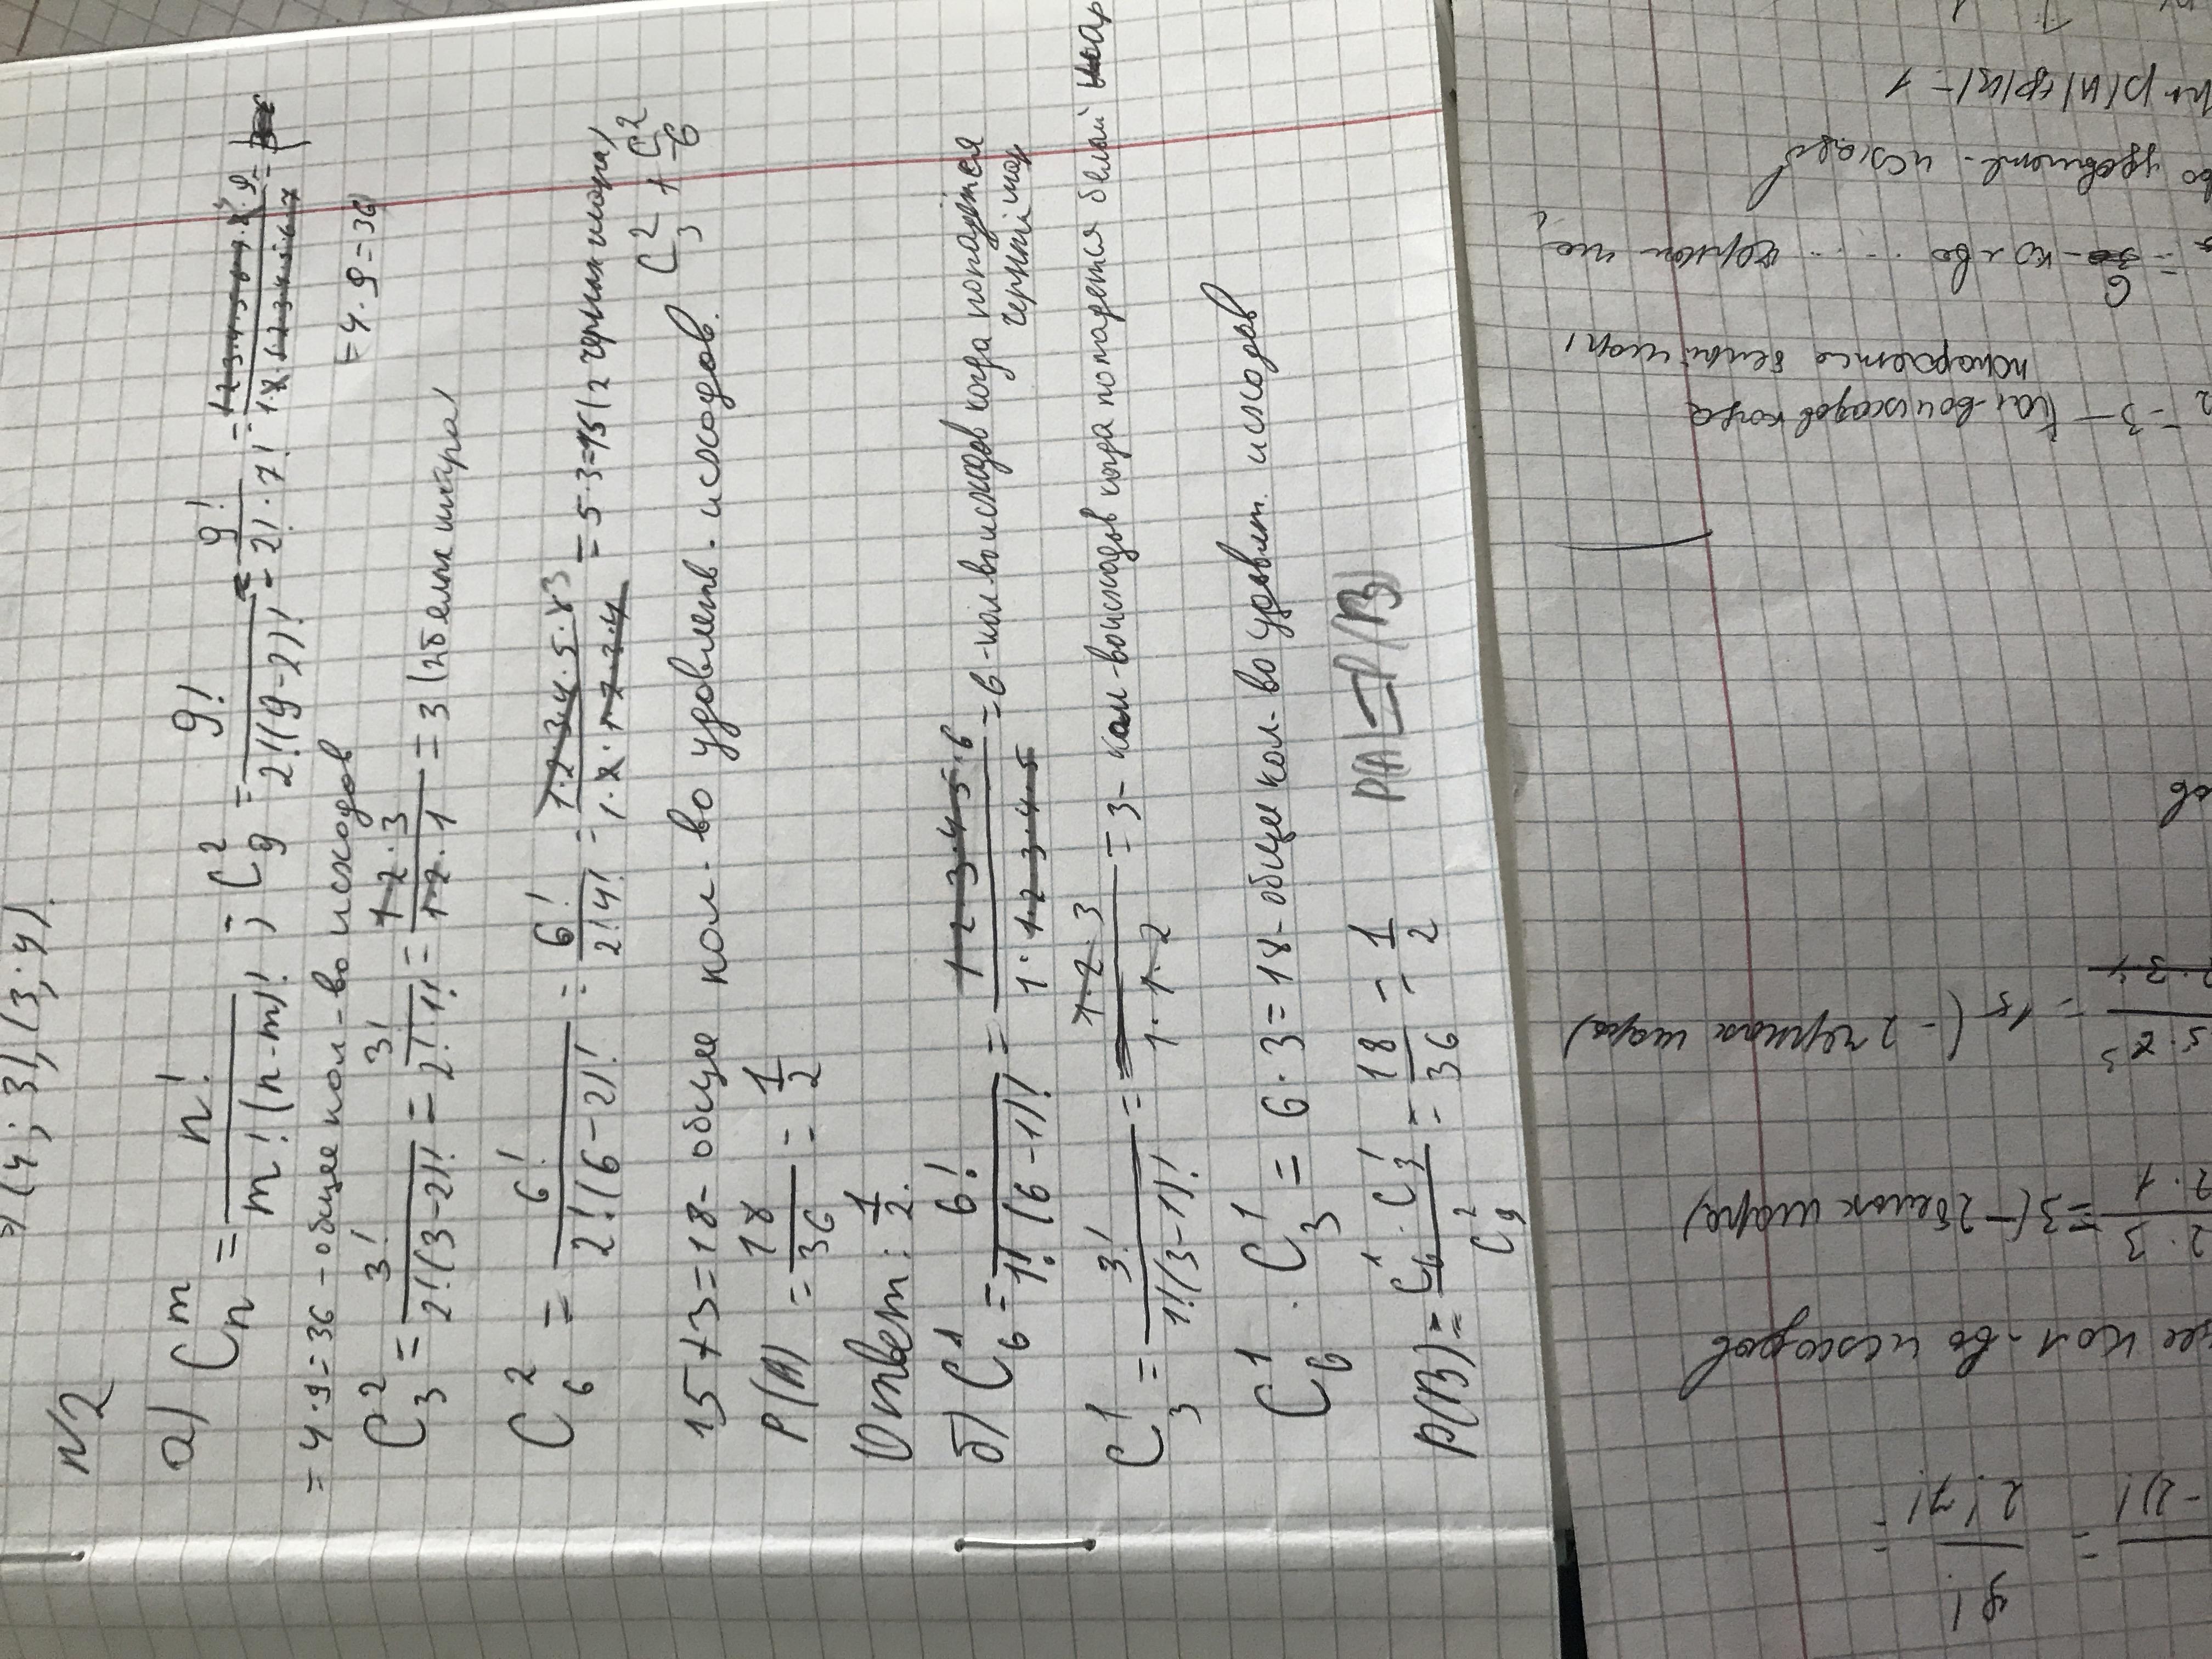 (4; 3), (3; 4).
N2
а) C_n^m = n! / m!(n-m)! ; C_9^2 = 9! / 2!(9-2)! = 9! / 2!·7! = 1·2·3·4·5·6·7·8·9 / 1·2·1·2·3·4·5·6·7 =
= 4·9 = 36
= 4·9 = 36 - общее кол-во исходов
C_3^2 = 3! / 2!(3-2)! = 3! / 2!·1! = 1·2·3 / 1·2·1 = 3 (2 белых шара)
C_6^2 = 6! / 2!(6-2)! = 6! / 2!4! = 1·2·3·4·5·6 3 / 1·2·1·2·3·4 = 5·3=15 (2 черных шара)
C_3^2 + C_6^2
15+3=18- общее кол-во удовлетв. исходов.
P(A) = 18/36 = 1/2
Ответ: 1/2.
б) C_6^1 = 6! / 1!(6-1)! = 1·2·3·4·5·6 / 1·1·2·3·4·5 = 6 - кол-во исходов когда попадётся
черный шар
C_3^1 = 3! / 1!(3-1)! = 1·2·3 / 1·1·2 = 3- кол-во исходов когда попадется белый шар
C_6^1 · C_3^1 = 6·3=18- общее кол-во удовлет. исходов
P(B) = C_6^1 · C_3^1 / C_9^2 = 18/36 = 1/2
P(A)=P(B)
9!
-2)! = 2!7! =
ее кол-во исходов
2·3 / 2·1 = 3 (- 2 белых шара)
= 15 (- 2 черных шара)
ов
2 = 3 - Кол-во исходов когда
попадется белый шар)
= 6 - кол-во ... черном
удовлет. исходов
P(A)=P(B)=1